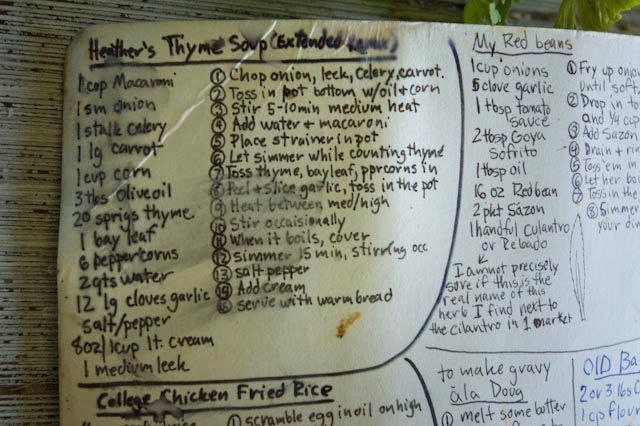 Heather's Thyme Soup (Extended Remix)
1 cup Macaroni
1 sm onion
1 stalk celery
1 lg carrot
1 cup corn
3 tbs Olive oil
20 sprigs thyme
1 bay leaf
6 peppercorns
2 qts water
12 lg cloves garlic
salt/pepper
8oz/1cup lt. cream
1 medium leek
① Chop onion, leek, Celery, carrot.
② Toss in pot bottom w/oil + corn
③ Stir 5-10 min medium heat
④ Add water + macaroni
⑤ Place strainer in pot
⑥ Let simmer while counting thyme
⑦ Toss thyme, bayleaf, pprcorns in
⑧ Peel + slice garlic, toss in the pot
⑨ Heat between med/high
⑩ Stir occaisionally
⑪ When it boils, cover
⑫ simmer 15 min, stirring occ
⑬ salt pepper
⑭ Add cream
⑮ serve with warm bread
My Red beans
1 cup onions
5 clove garlic
1 tbsp tomato
sauce
2 tbsp Goya
Sofrito
1 tbsp oil
16 oz Redbean
2 pkt Sazon
1 handful culantro
or Rebado
I am not precisely
sure if this is the
real name of this
herb I find next to
the cilantro in 1 market
① Fry up
until soft
② Drop in
and 1/4 cup
③ Add Sazon
④ Drain + rin
⑤ Toss 'em
⑥ Let her boi
⑦ Toss in the
⑧ Simmer
your din
College Chicken Fried Rice
① scramble egg in oil on high
to make gravy
àla Doug
① melt some butter
OLD Ba
2 or 3 lbs
1 cp flour